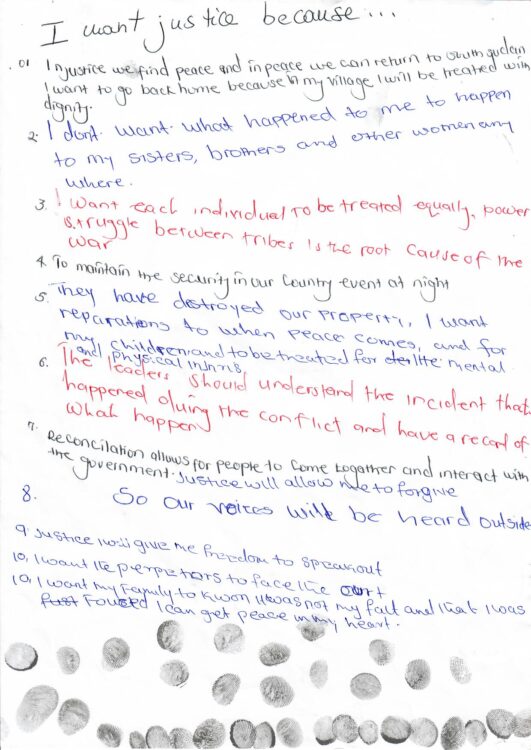 I want justice because...
01 Injustice we find peace and in peace we can return to south sudan
I want to go back home because in my village I will be treated with
dignity.
2. I dont want what happened to me to happen
to my sisters, brothers and other women any
where.
3. I want each individual to be treated equally, power
struggle between tribes is the root cause of the
war
4. To maintain the security in our country event at night
5. They have destroyed our property, I want
reparations to when peace comes, and for
my children and to be treated for the mental
and physical injuris
6. The leaders should understand the incident that
happened duing the conflict and have a record of
what happen
7. Reconcilation allows for people to come together and interact with
the government. Justice will allow me to forgive
8. So our voices will be heard outside
9 Justice will give me freedom to spreakout
10, I want the perpetrors to face the court
10, I want my family to kwon it was not my falt and that I was
Fouced I can get peace in my heart.